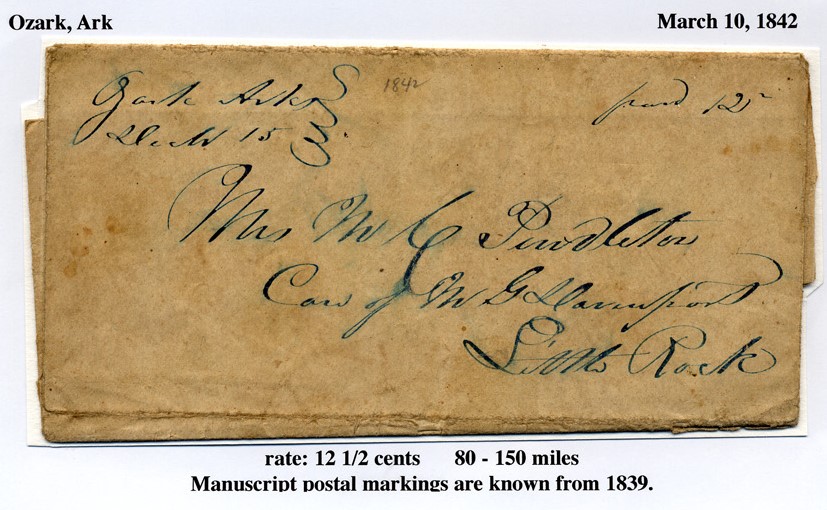 Ozark, Ark
March 10, 1842
Ozark Arks
1842
paid 12
15
Mrs M C Pendleton
Care of Mr G Davenport
Little Rock
rate: 12 1/2 cents 80 - 150 miles
Manuscript postal markings are known from 1839.